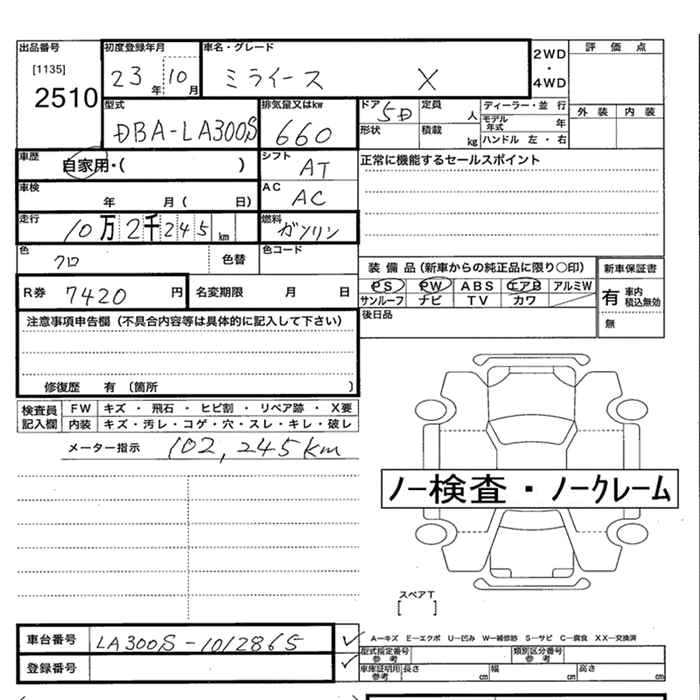 出品番号 初度登録年月 車名・グレード 2WD・4WD 評価点
[1135] 2510 23年 10月 ミライース X
外装 内装
型式 排気量又はkw ドア 5D 定員 人 ディーラー・並行
DBA-LA300S 660 形状 積載 kg モデル年式 年
ハンドル 左・右
車歴 自家用・( ) シフト AT 正常に機能するセールスポイント
車検 年 月( 日) AC AC
走行 10万2千245km 燃料 ガソリン
色 クロ 色替 色コード
装備品(新車からの純正品に限り○印) 新車保証書
R券 7420円 名変期限 月 日 PS PW ABS エアB アルミW 有 車内税込無効
サンルーフ ナビ TV カワ
注意事項申告欄(不具合内容等は具体的に記入して下さい) 後日品 無
修復歴 有 (箇所 )
検査員記入欄 FW キズ・飛石・ヒビ割・リペア跡・X要
内装 キズ・汚レ・コゲ・穴・スレ・キレ・破レ
メーター指示 102,245km
ノー検査・ノークレーム
スペアT
[ ]
車台番号 LA300S-1012865 A-キズ E-エクボ U-凹み W-補修跡 S-サビ C-腐食 XX-交換済
型式指定番号 参考 類別区分番号 参考
登録番号 車庫証明用 参考 長さ cm 幅 cm 高さ cm